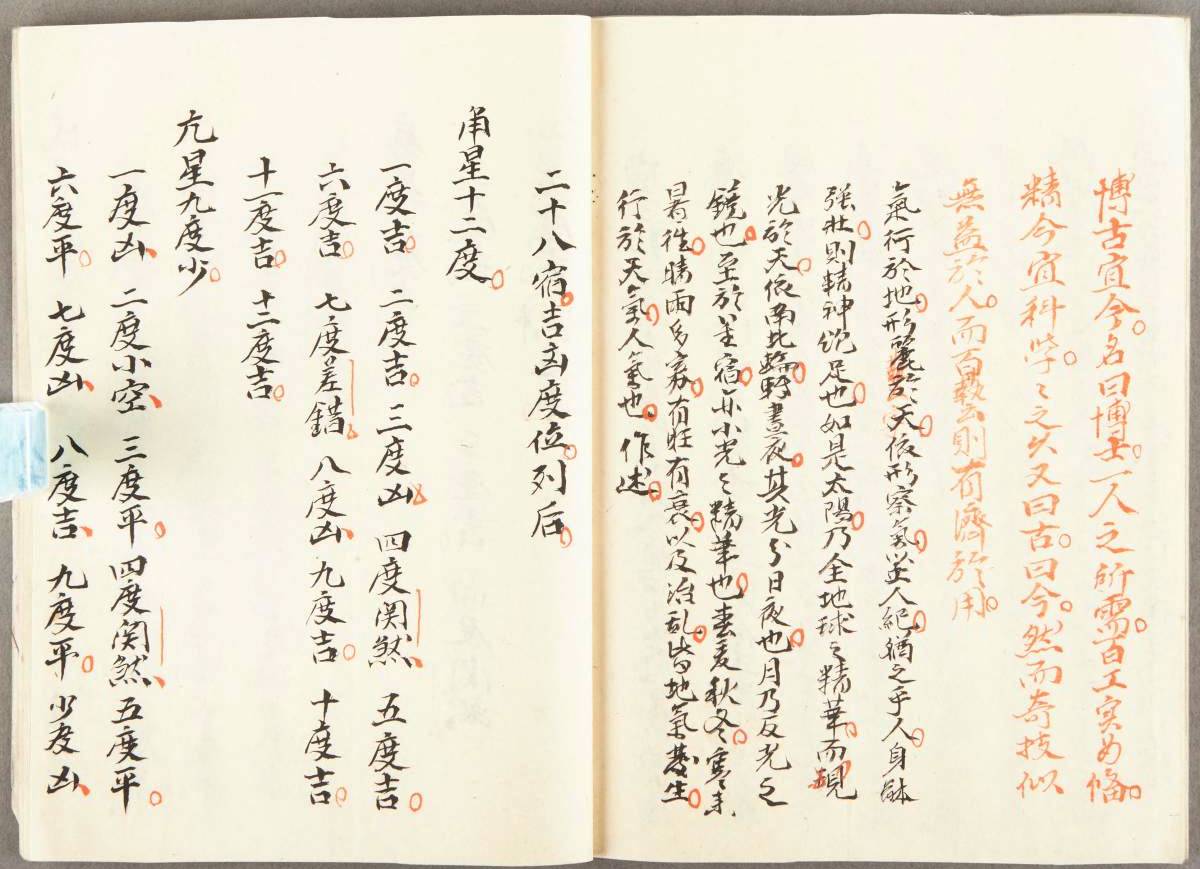 博古宜今。名曰博士。一人之所需。百工実為備。
精今宜科学。々之久又曰古。曰今。然而奇技似
無益於人。而百藝云則有済於用。
氣行於地。形麗於天。依形察氣。以人紀。猶之乎人。身躰
强壮。則精神飽足也。如是太陽。乃全地球之精華。而現
光於天。依南北輪轉。晝夜。其光分日夜也。月乃反光之
鏡也。至於星宿。小光之精華也。春夏秋冬。寒来
暑往。晴雨多寡。有旺有衰。以及治乱。皆地氣發生。
行於天氣。人氣也。作述。
二十八宿。吉凶度位。列后。
角星十二度。
一度吉。 二度吉。 三度凶、 四度関煞、 五度吉。
六度吉。 七度差錯、 八度凶、 九度吉。 十度吉。
十一度吉。 十二度吉。
亢星九度少。
一度凶、 二度小空、 三度平。 四度関煞、 五度平。
六度平。 七度凶、 八度吉、 九度平。 少度凶、